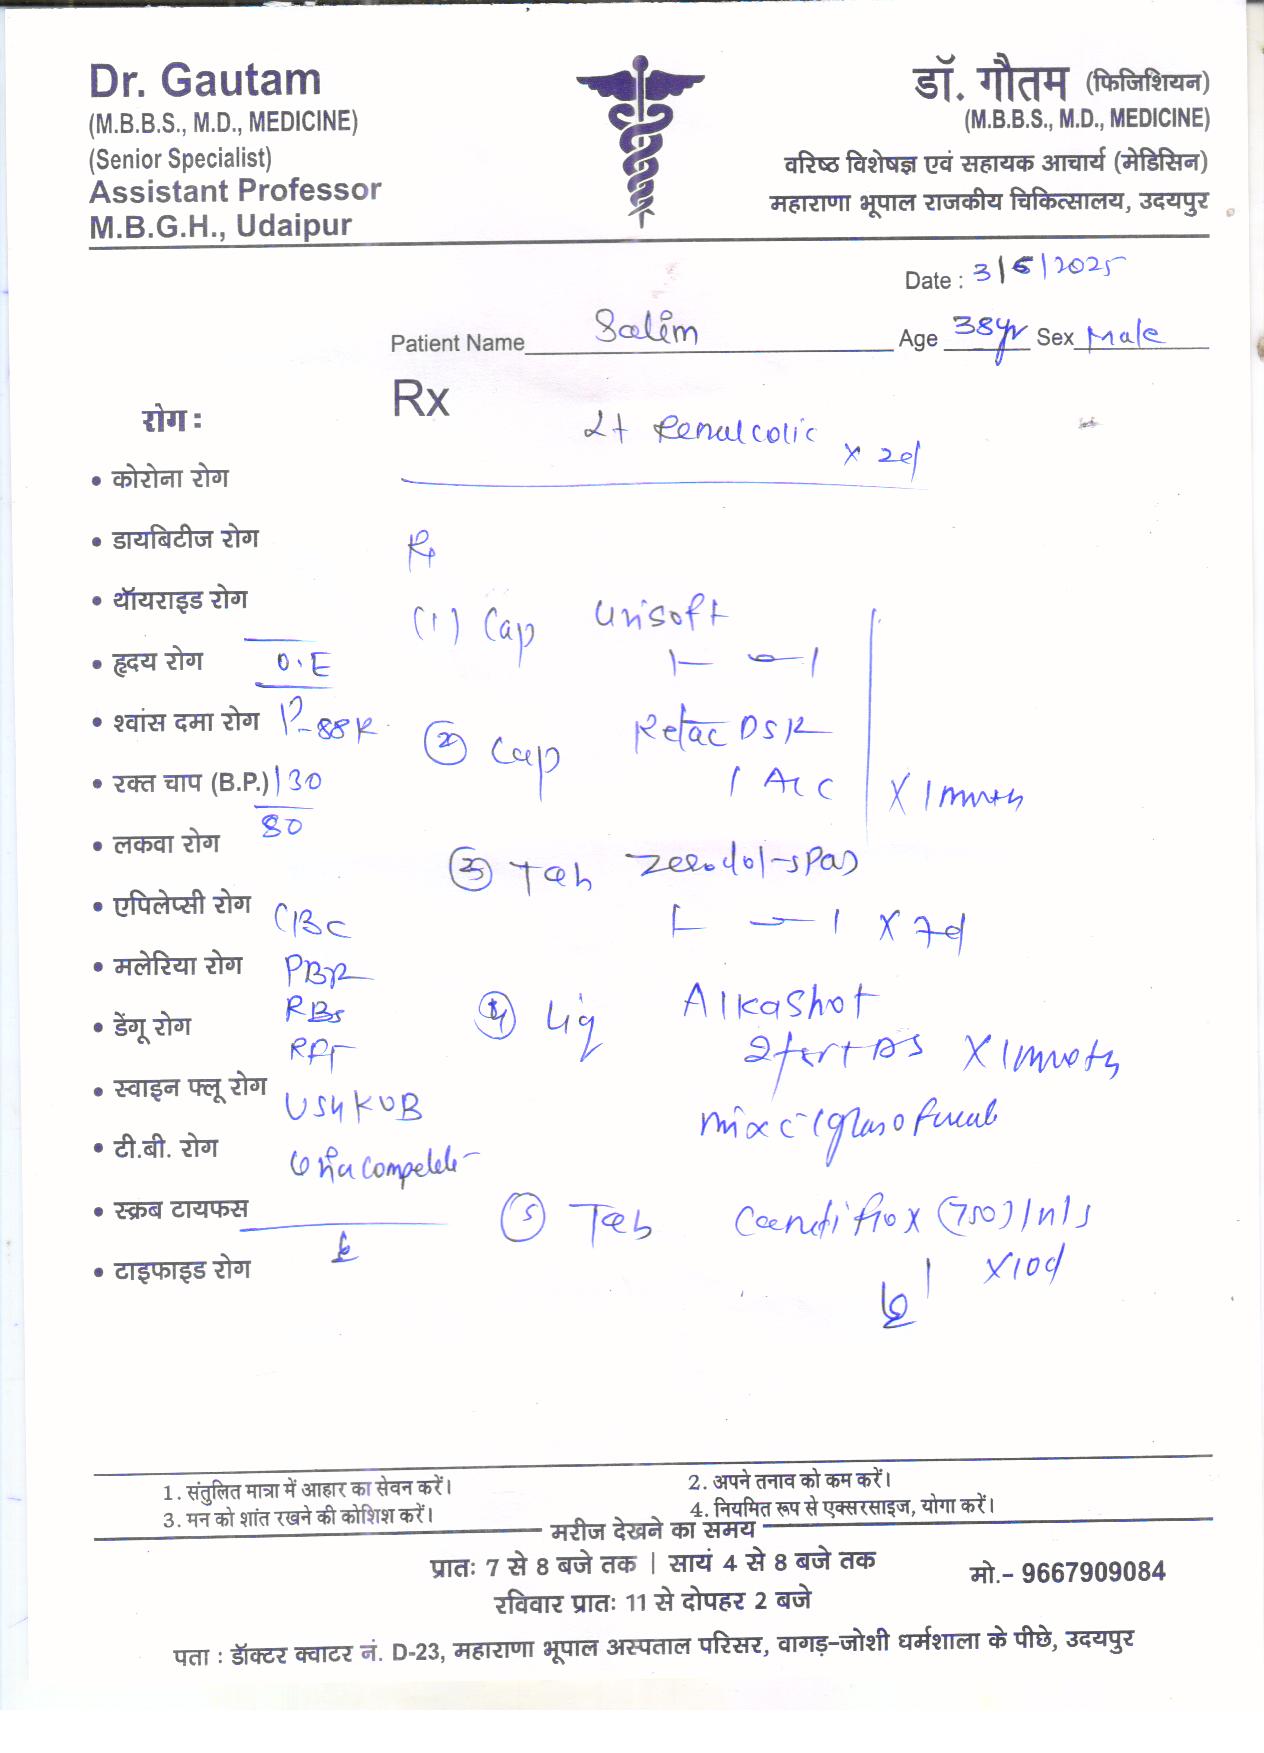 Dr. Gautam
(M.B.B.S., M.D., MEDICINE)
(Senior Specialist)
Assistant Professor
M.B.G.H., Udaipur
डॉ. गौतम (फिजिशियन)
(M.B.B.S., M.D., MEDICINE)
वरिष्ठ विशेषज्ञ एवं सहायक आचार्य (मेडिसिन)
महाराणा भूपाल राजकीय चिकित्सालय, उदयपुर
Date : 3/6/2025
Patient Name Salim Age 38yr Sex Male
Rx
Lt Renal colic x 2d
रोग :
• कोरोना रोग
• डायबिटीज रोग
• थॉयराइड रोग
• हृदय रोग
O.E
• श्वांस दमा रोग P-88
• रक्त चाप (B.P.) 130
80
• लकवा रोग
• एपिलेप्सी रोग
CBC
• मलेरिया रोग
PBF
RBS
• डेंगू रोग
RFT
• स्वाइन फ्लू रोग
USG KUB
• टी.बी. रोग
• स्क्रब टायफस
• टाइफाइड रोग
Rx
(1) Cap Urisoft
1 — 1
(2) Cap DSR
1 AC
X 1 month
(3) Tab Zerodol-spas
1 — 1 X 7d
(4) Liq Alkashot
X 1 month
mix c 1 glass of
(5) Tab (750) 1
X 10d
1. संतुलित मात्रा में आहार का सेवन करें।
2. अपने तनाव को कम करें।
3. मन को शांत रखने की कोशिश करें।
4. नियमित रूप से एक्सरसाइज, योगा करें।
मरीज देखने का समय
प्रातः 7 से 8 बजे तक | सायं 4 से 8 बजे तक
मो.- 9667909084
रविवार प्रातः 11 से दोपहर 2 बजे
पता : डॅाक्टर क्वाटर नं. D-23, महाराणा भूपाल अस्पताल परिसर, वागड़-जोशी धर्मशाला के पीछे, उदयपुर